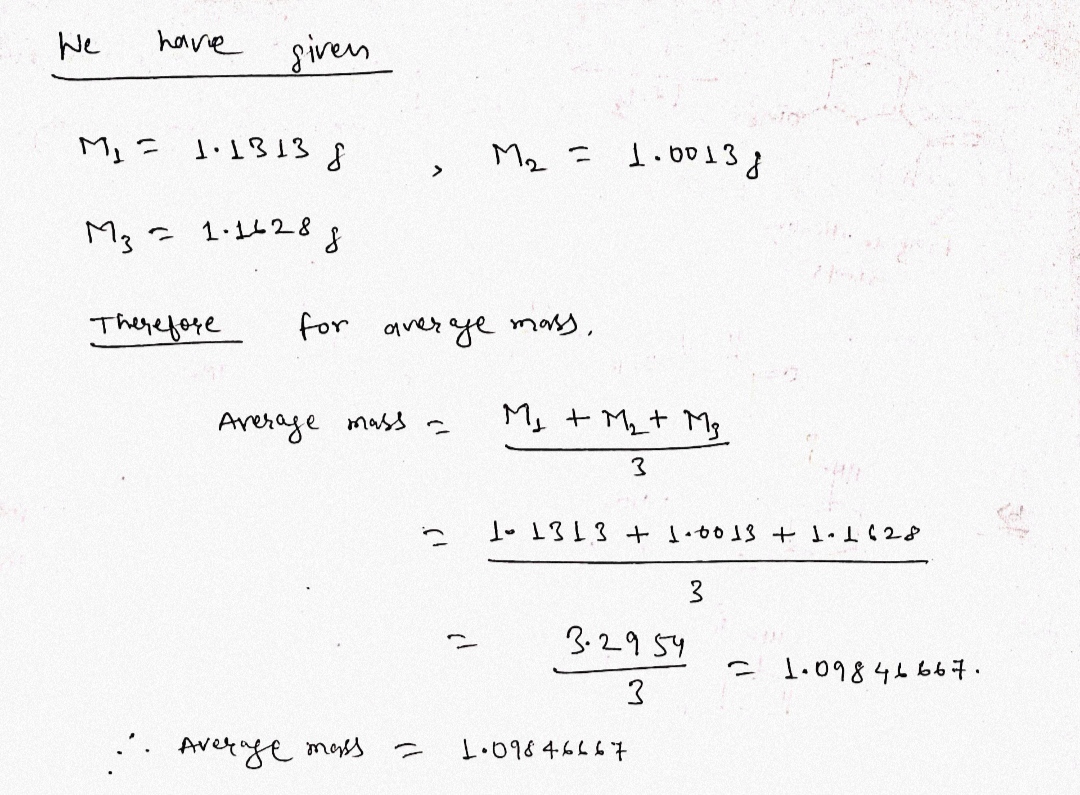 We have given
M₁ = 1.1313 g , M₂ = 1.0013 g
M₃ = 1.1628 g
Therefore for average mass,
Average mass = M₁ + M₂ + M₃
3
= 1.1313 + 1.0013 + 1.1628
3
= 3.2954
3
= 1.09846667.
∴ Average mass = 1.09846667